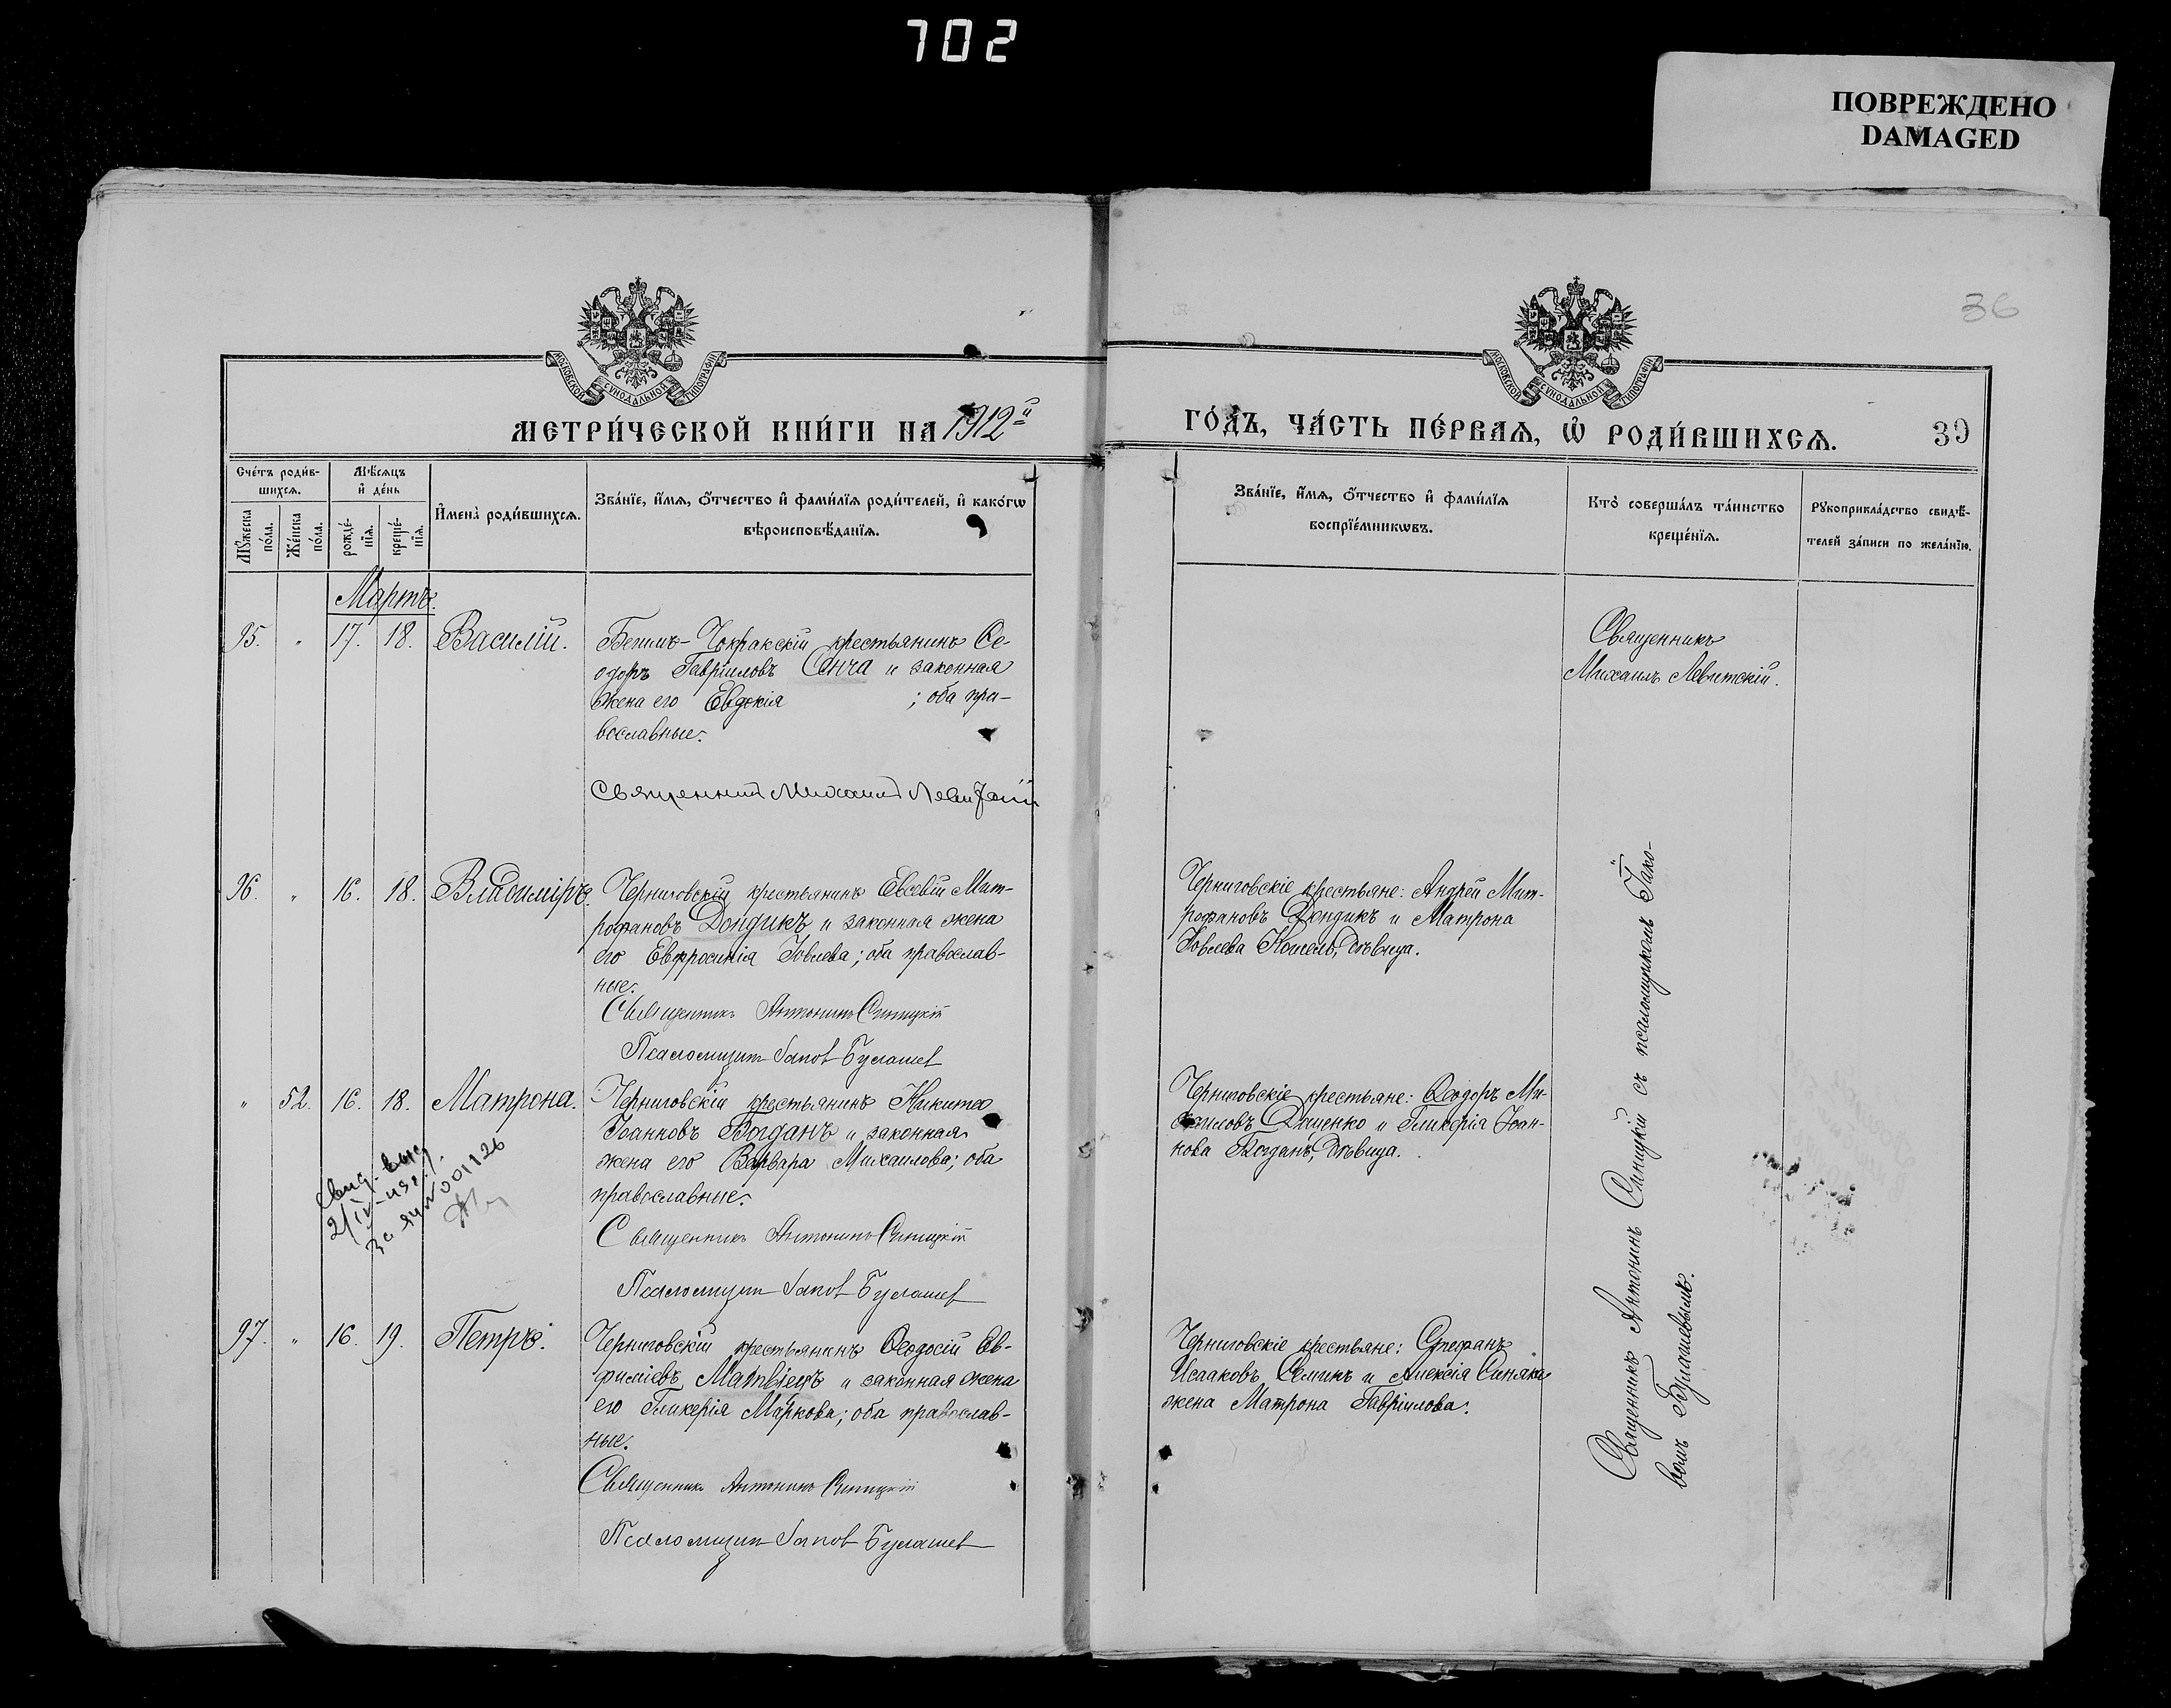 702
ПОВРЕЖДЕНО
DAMAGED
36
МОСКОВСКОЙ СѴНОДАЛЬНОЙ ТИПОГРАФІИ
МОСКОВСКОЙ СѴНОДАЛЬНОЙ ТИПОГРАФІИ
МЕТРИ́ЧЕСКОЙ КНИ́ГИ НА 1912й
ГО́ДЪ, ЧА́СТЬ ПЕ́РВАѦ, Ѡ҆ РОДИ́ВШИХСѦ.
39
Сче́тъ роди́в-
шихсѧ.
Мѣ́сѧцъ
и҆ де́нь
Мꙋ́жеска
по́ла.
Же́нска
по́ла.
рожде́-
нїѧ.
креще́-
нїѧ.
И҆мена̀ роди́вшихсѧ.
Зва́нїе, и҆́мѧ, ѻ҆́тчество и҆ фами́лїѧ роди́телей, и҆ како́гѡ
вѣроисповѣ́данїѧ.
Зва́нїе, и҆́мѧ, ѻ҆́тчество и҆ фами́лїѧ
воспрїе́мникѡвъ.
Кто̀ соверша́лъ та́инство
креще́нїѧ.
Рꙋкоприкла́дство свидѣ́-
телей за́писи по жела́нїю.
Мартъ.
95. " 17. 18. Василій.
Бегимъ-Чокракскій крестьянинъ Ѳе-
одоръ Гавріиловъ Сенча и законная
жена его Евдокія ; оба пра-
вославные.
Священник Михаил Левитский
Священникъ
Михаилъ Левитскій.
96. " 16. 18. Владиміръ.
Черниговскій крестьянинъ Евсевій Мит-
рофановъ Дондикъ и законная жена
его Евфросинія Іовлева; оба православ-
ные.
Священникъ Антонинъ Синицкій
Псаломщик Іаков Булашев
Черниговскіе крестьяне: Андрей Мит-
рофановъ Дондикъ и Матрона
Іовлева Кошель, дѣвица.
" 52. 16. 18. Матрона.
Черниговскій крестьянинъ Никита
Іоанновъ Богданъ и законная
жена его Варвара Михаилова; оба
православные.
Священникъ Антонинъ Синицкій
Псаломщик Іаков Булашев
Черниговскіе крестьяне: Ѳеодоръ Ми-
хаиловъ Даценко и Гликерія Іоан-
нова Богданъ, дѣвица.
Свид. выд.
2/IV-
за № 001126
97. " 16. 19. Петръ.
Черниговскій крестьянинъ Ѳеодосій Ев-
фиміевъ Матвіецъ и законная жена
его Гликерія Маркова; оба православ-
ные.
Священникъ Антонинъ Синицкій
Псаломщик Іаков Булашев
Черниговскіе крестьяне: Стефанъ
Исааковъ Семикъ и Алексія Синяка
жена Матрона Гавріилова.
Священникъ Антонинъ Синицкій съ псаломщикомъ Іако-
вомъ Булашевымъ.